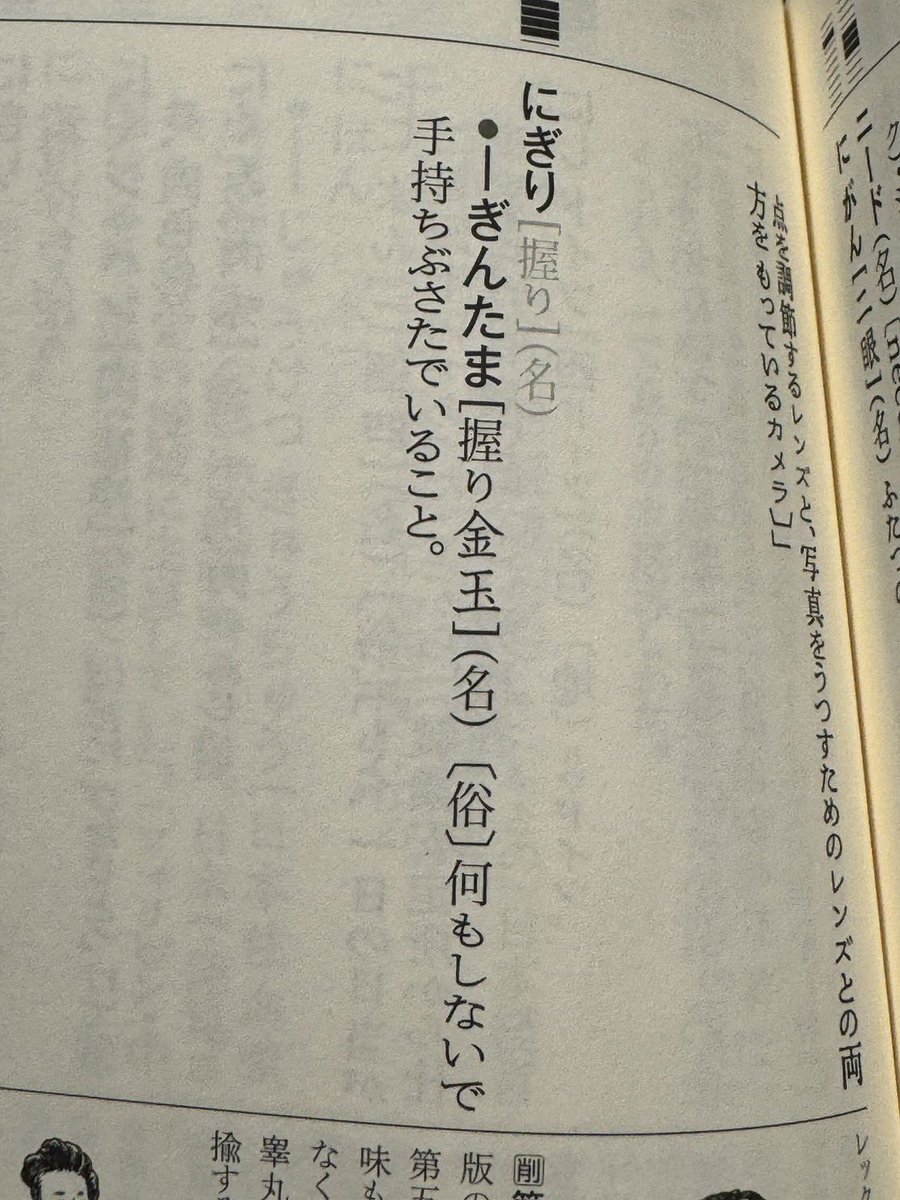 ニード(名)〔nee
にがん[二眼](名) ふたつ
点を調節するレンズと、写真をうつすためのレンズとの両
方をもっているカメラ〕」
にぎり[握り](名)
●ーぎんたま[握り金玉](名)〔俗〕何もしないで
手持ちぶさたでいること。
レック
削
版の
第五
味も
なく
睾丸
揄する